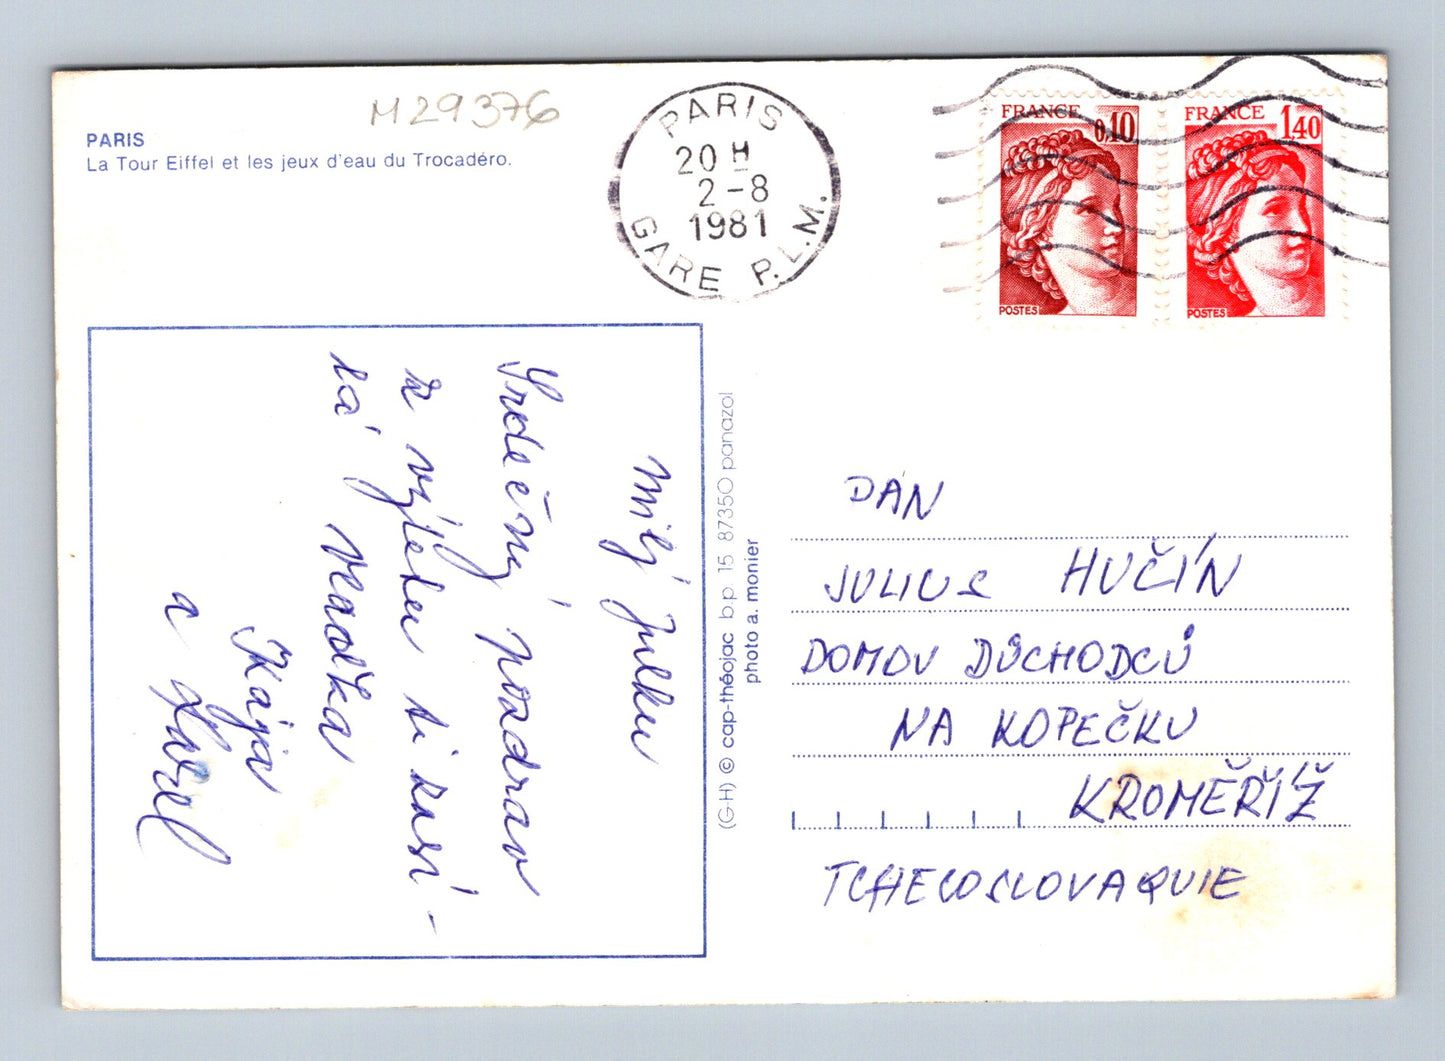 M29376
PARIS
La Tour Eiffel et les jeux d'eau du Trocadéro.
PARIS
20 H
2-8
1981
GARE P.L.M.
FRANCE
0,10
POSTES
FRANCE
1,40
POSTES
Milý Julku
Srdečný pozdrav
z výletu ti posí-
lá Vlaďka
Kája
a Karel
(G-H) © cap-théojac b.p. 15 87350 panazol
photo a. monier
PÁN
JULIUS HUČÍN
DOMOV DŮCHODCŮ
NA KOPEČKU
KROMĚŘÍŽ
TCHECOSLOVAQUIE